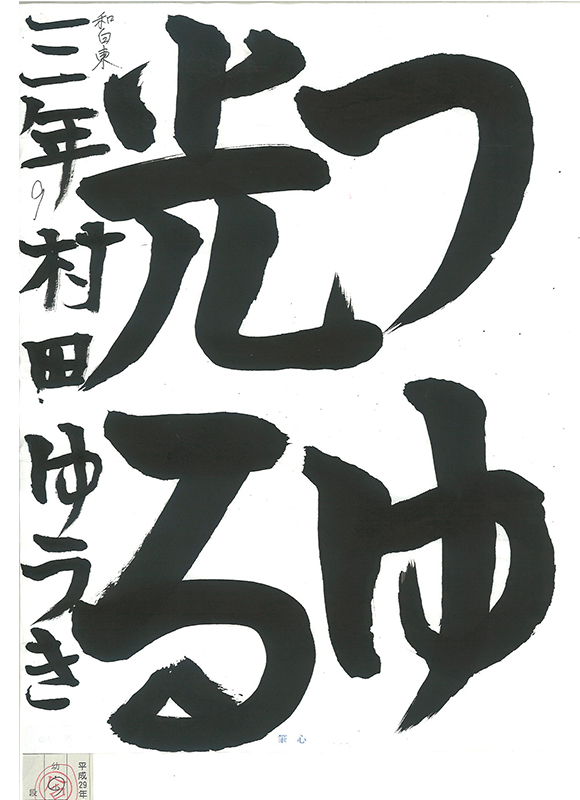 つゆ
光る
和白東
三年 村田ゆうき
9
筆心
平成29年
幼
段